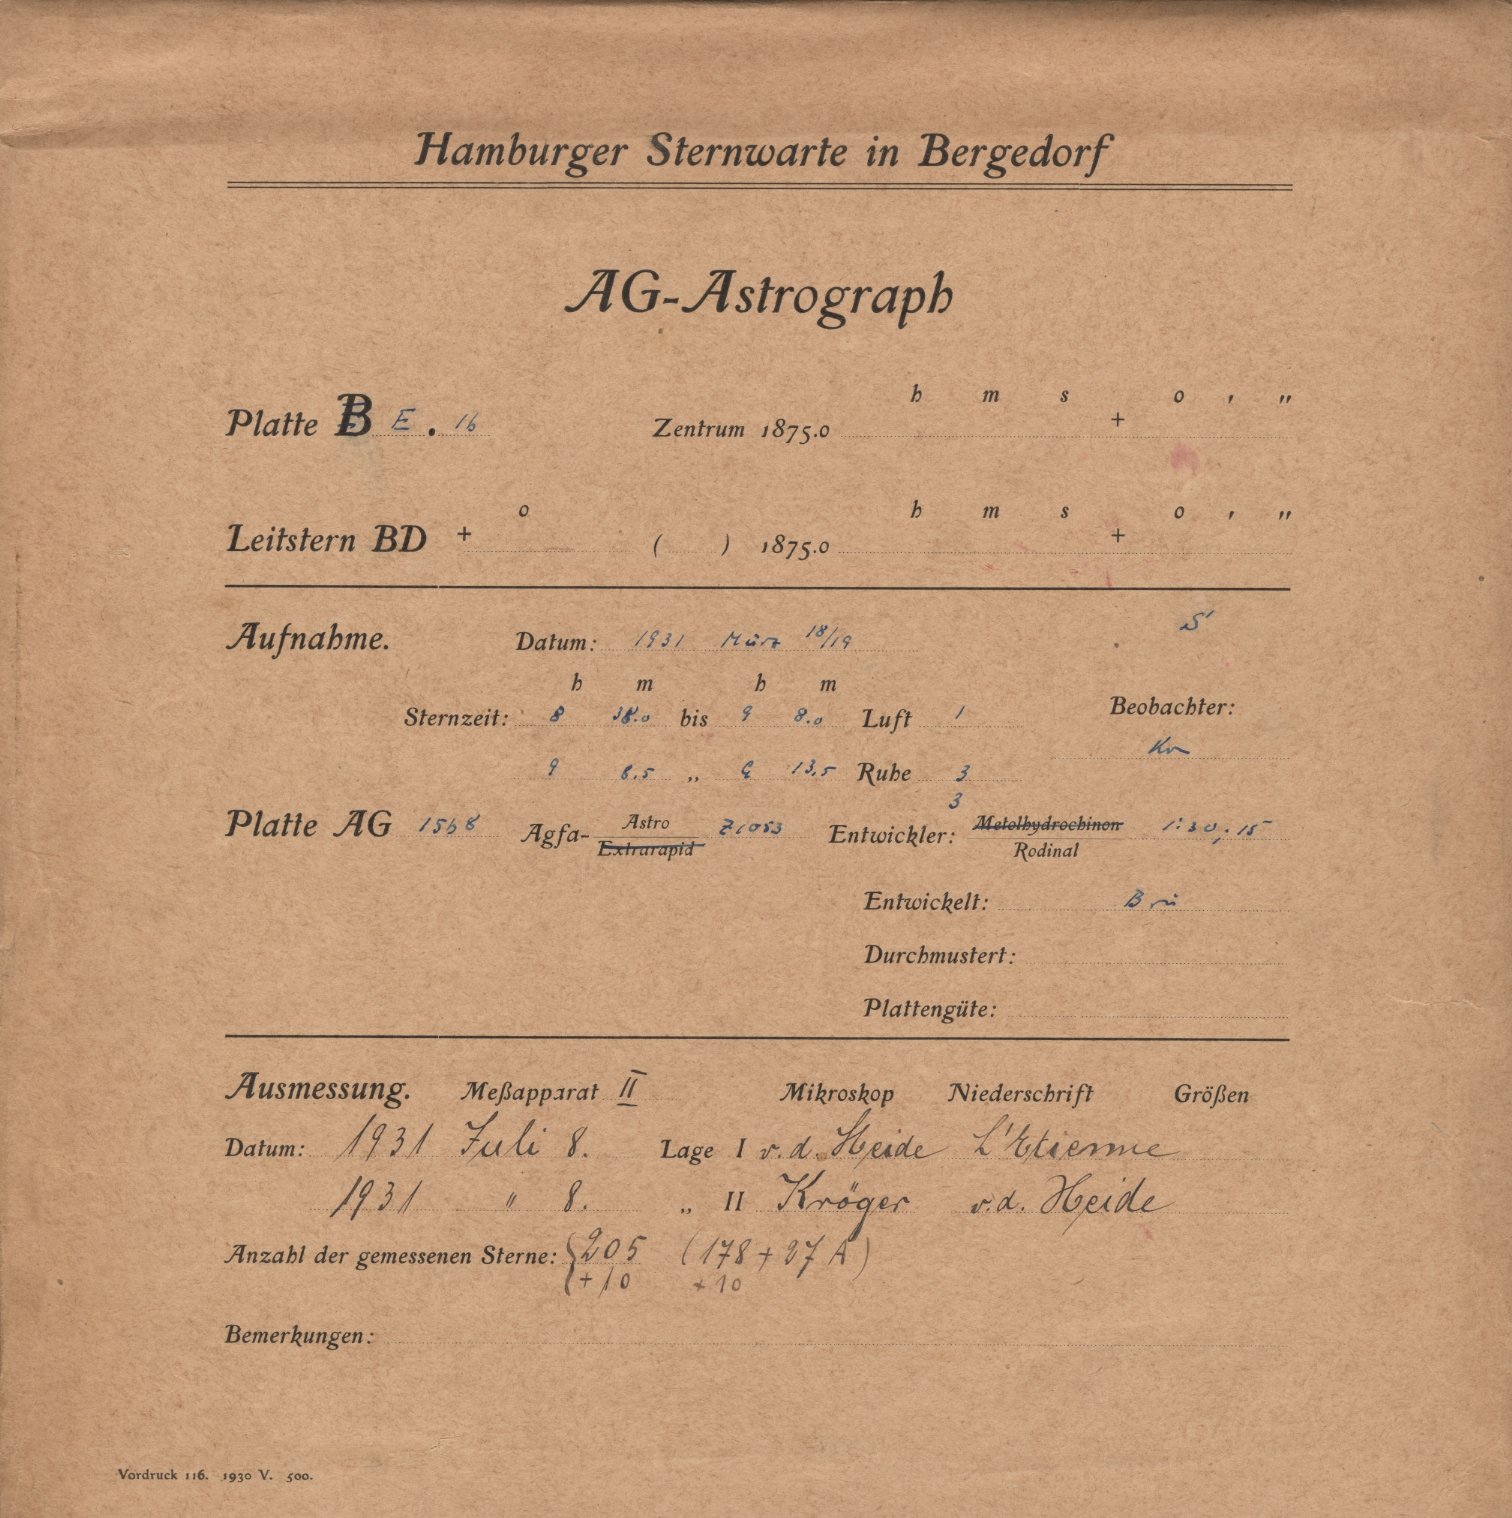 Hamburger Sternwarte in Bergedorf
AG-Astrograph
h m s o , „
Platte B E . 16 Zentrum 1875.0 +
o h m s o , „
Leitstern BD + ( ) 1875.0 +
S'
Aufnahme. Datum: 1931 März 18/19
h m h m
Sternzeit: 8 38.0 bis 9 8.0 Luft 1 Beobachter:
Kr
9 8.5 „ 9 13.5 Ruhe 3
3
Platte AG 1568 Agfa- Astro Extrarapid Z1053 Entwickler: Metolhydrochinon Rodinal 1:30, 15
Entwickelt: Brü
Durchmustert:
Plattengüte:
Ausmessung. Meßapparat II Mikroskop Niederschrift Größen
Datum: 1931 Juli 8. Lage I v. d. Heide L'Etienne
1931 " 8. „ II Kröger v.d. Heide
Anzahl der gemessenen Sterne: { 205 (178 + 27 A)
+ 10 + 10
Bemerkungen:
Vordruck 116. 1930 V. 500.